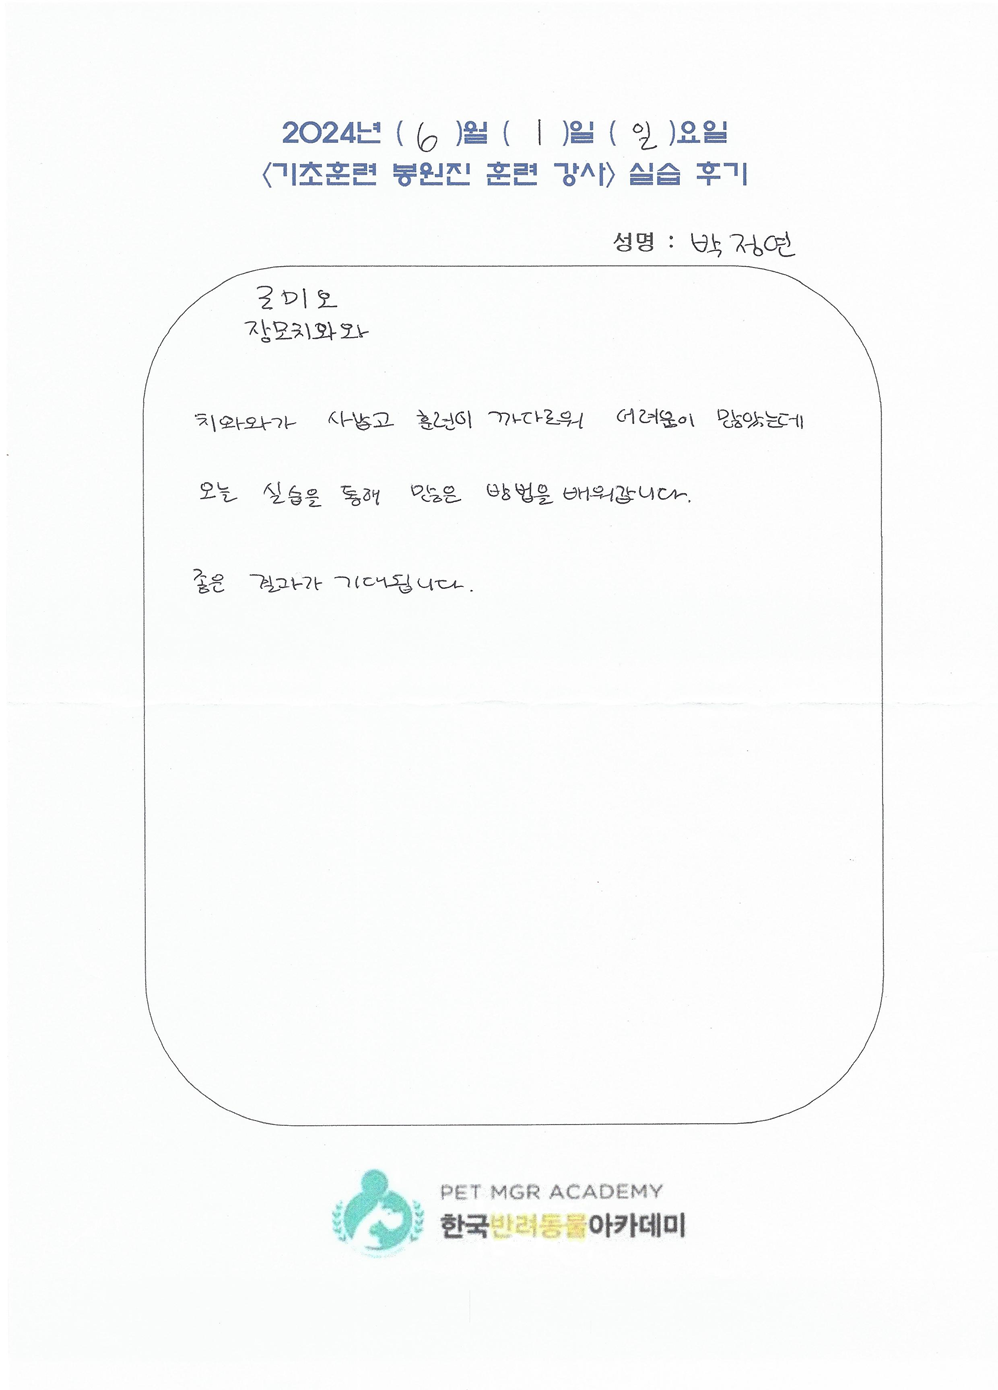 2024년 ( 6 )월 ( 1 )일 ( 일 )요일
<기초훈련 봉원진 훈련 강사> 실습 후기
성명 : 박정연
로미오
장모치와와
치와와가 사납고 훈련이 까다로워 어려움이 많았는데
오늘 실습을 통해 많은 방법을 배워갑니다.
좋은 결과가 기대됩니다.
PET MGR ACADEMY
한국반려동물아카데미